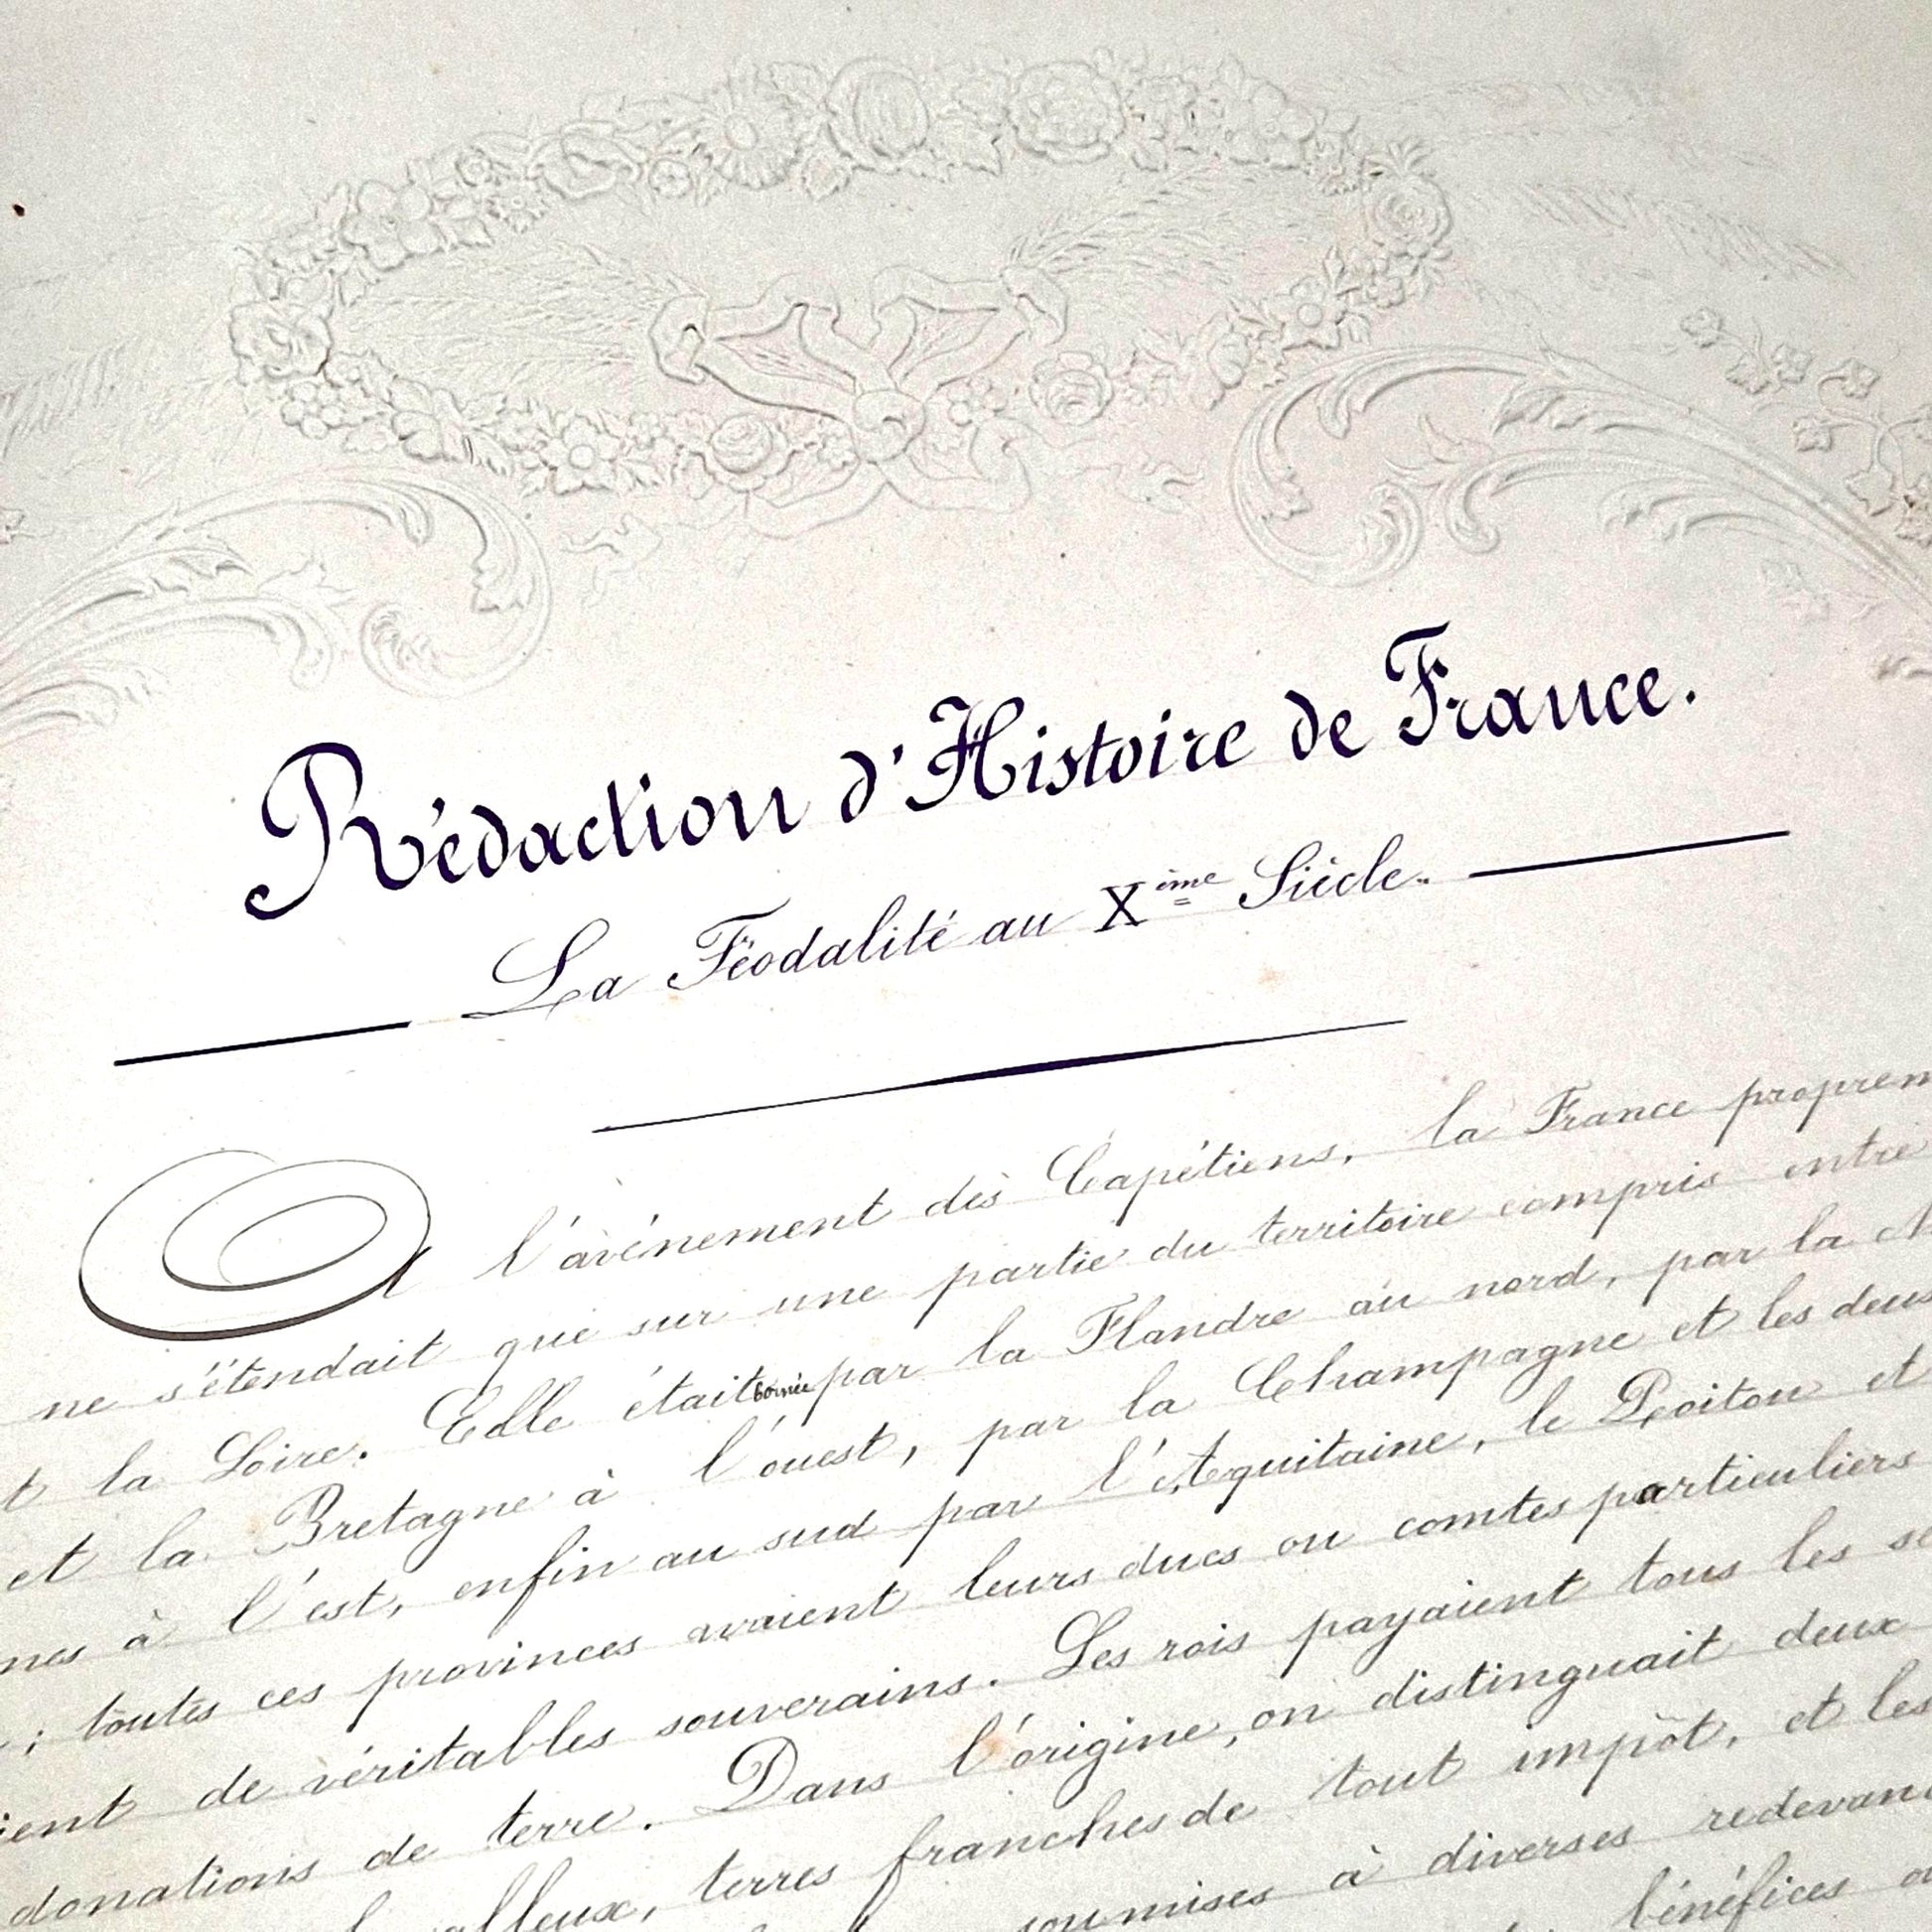 Rédaction d'Histoire de France.
La Féodalité au Xème Siècle.
A l'avènement des Capétiens, la France proprem
ne s'étendait que sur une partie du territoire compris entre
t la Loire. Elle était bornée par la Flandre au nord, par la N
et la Bretagne à l'ouest, par la Champagne et les deux
nes à l'est, enfin au sud par l'Aquitaine, le Poitou et
; toutes ces provinces avaient leurs ducs ou comtes particuliers
ient de véritables souverains. Les rois payaient tous les se
donations de terre. Dans l'origine, on distinguait deux
alleux, terres franches de tout impôt, et les
soumises à diverses redevan
bénéfices a